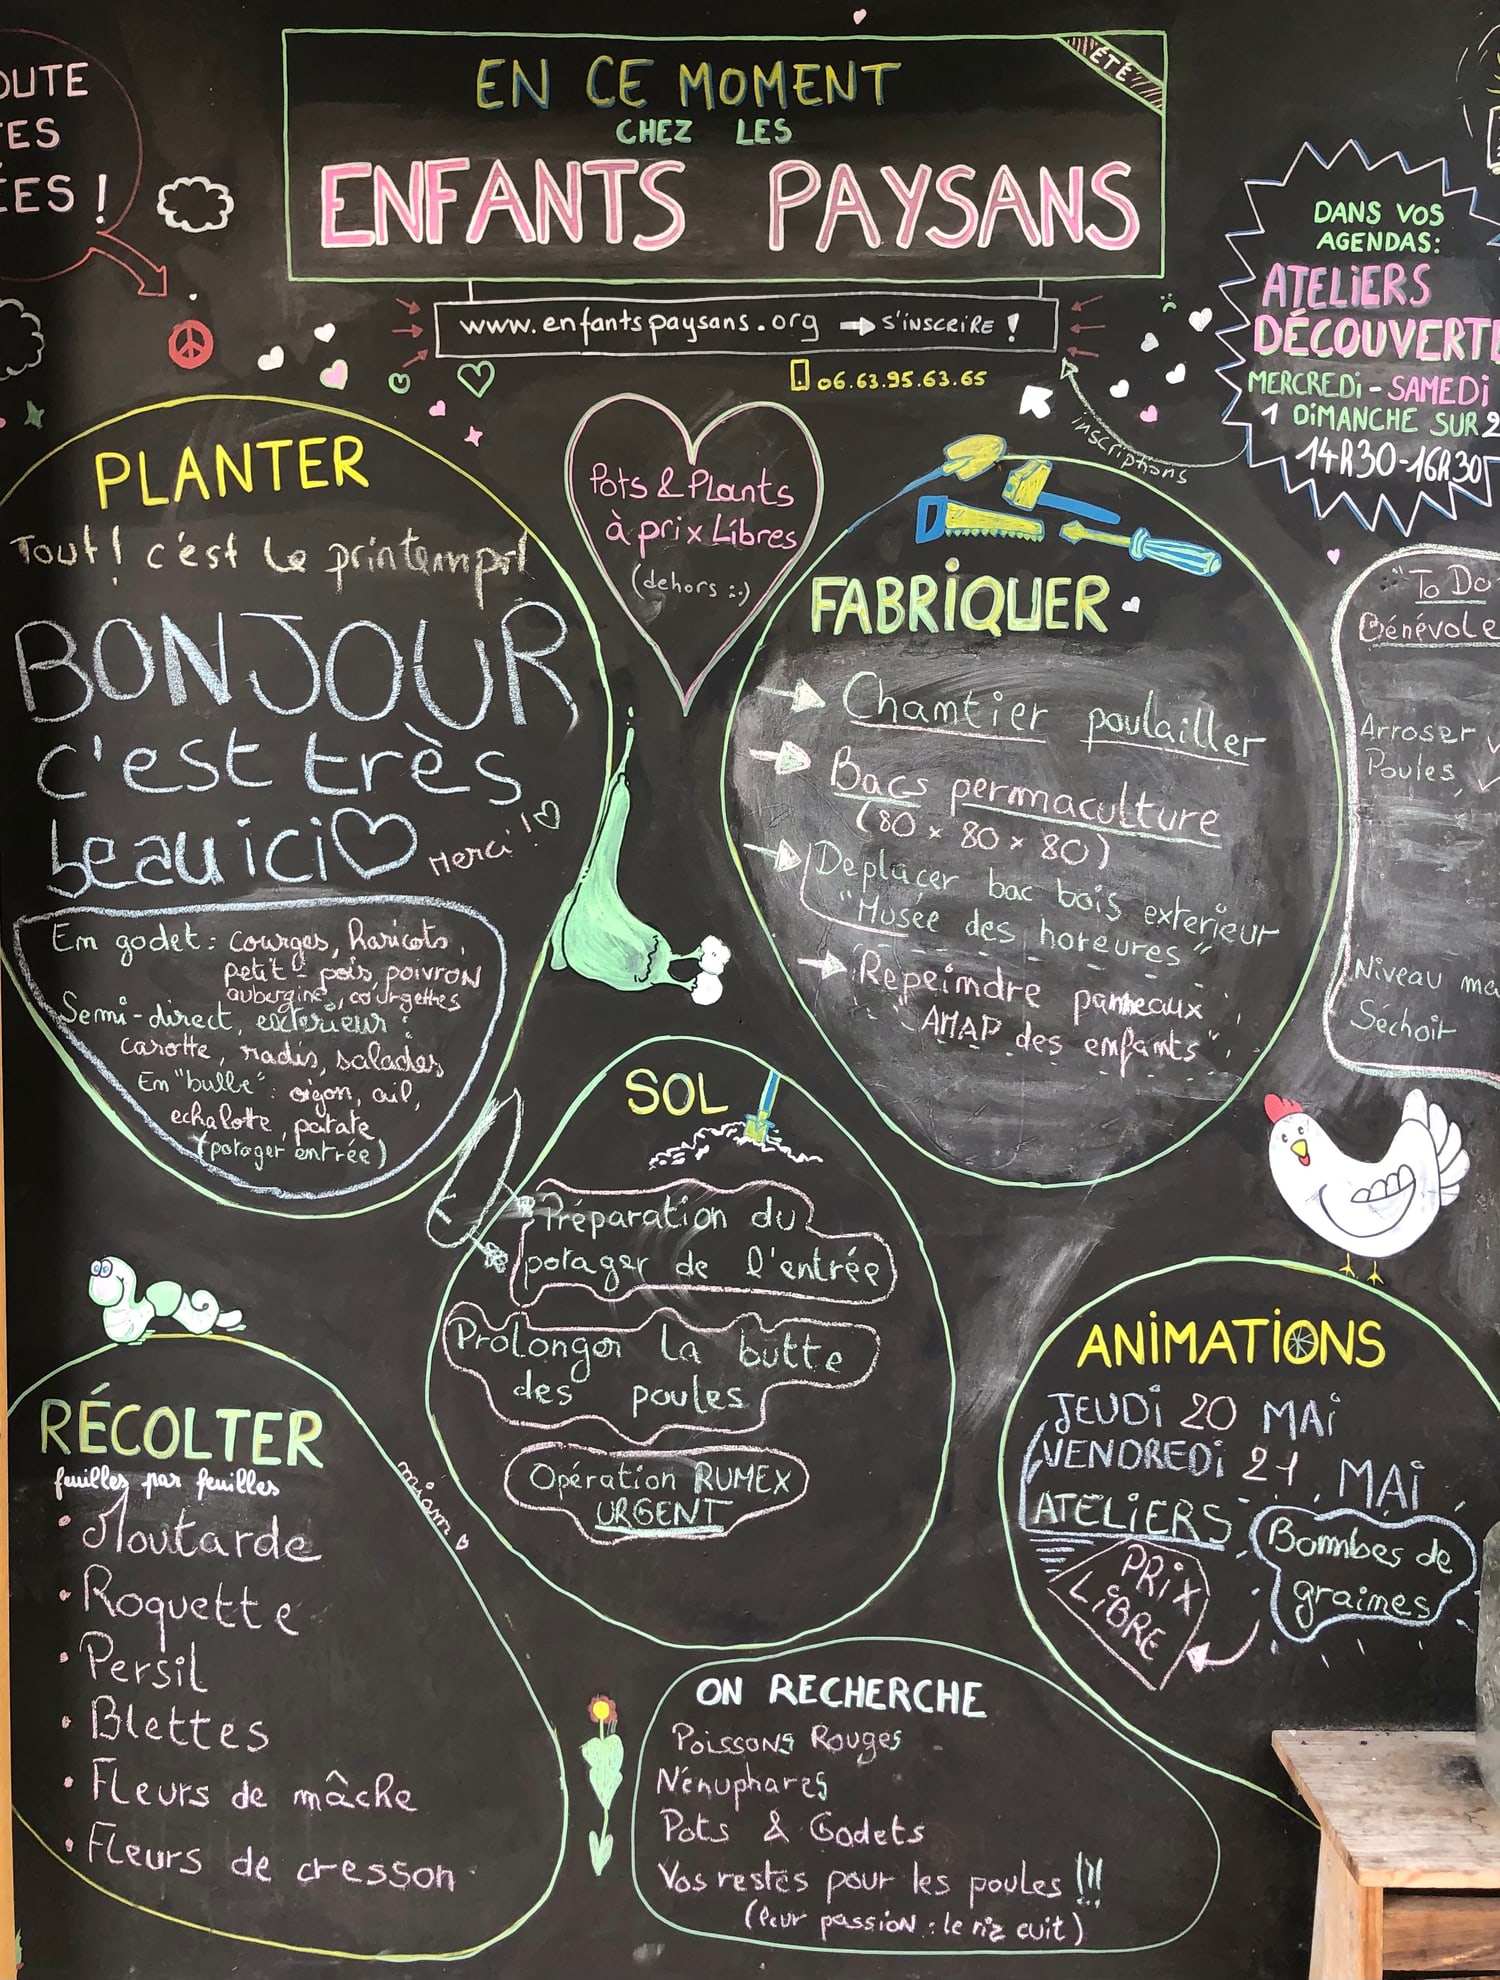 OUTE
TES
ÉES !
EN CE MOMENT
CHEZ LES
ENFANTS PAYSANS
ÉTÉ
www.enfantspaysans.org → S'INSCRIRE !
06.63.95.63.65
inscriptions
DANS VOS
AGENDAS:
ATELIERS
DÉCOUVERTE
MERCREDI - SAMEDI
1 DIMANCHE SUR 2
14h30-16h30
PLANTER
Tout! c'est le printemps!
BONJOUR
c'est très
beau ici ♡
Merci ! ♡
En godet : courges, haricots,
petit-pois, poivron
aubergine, courgettes
Semi-direct, exterieur :
carotte, radis, salades
En "bulle" : oignon, ail,
echalotte, patate
(potager entrée)
Pots & Plants
à prix Libres
(dehors :-)
FABRIQUER
→ Chantier poulailler
→ Bacs permaculture
(80 x 80 x 80)
→ Deplacer bac bois exterieur
"Musée des horeures"
→ Repeindre panneaux
"AMAP des enfants"
"To Do
Bénévole
Arroser
Poules
Niveau ma
Séchoir
SOL
Préparation du
potager de l'entrée
Prolonger la butte
des poules
Opération RUMEX
URGENT
RÉCOLTER
feuilles par feuilles
• Moutarde
• Roquette
• Persil
• Blettes
• Fleurs de mâche
• Fleurs de cresson
ANIMATIONS
JEUDI 20 MAI
VENDREDI 21 MAI
ATELIERS
Bombes de
graines
PRIX
LIBRE
ON RECHERCHE
Poissons Rouges
Nénuphares
Pots & Godets
Vos restes pour les poules !!!
(leur passion : le riz cuit)